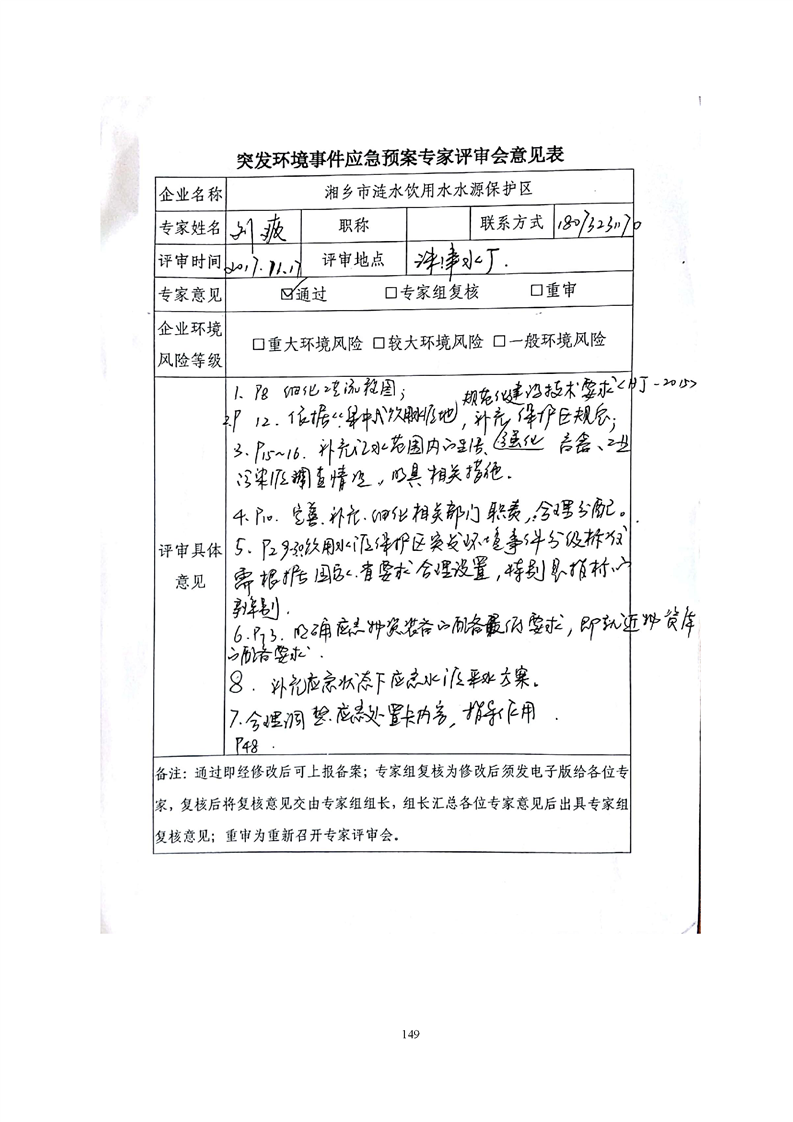 突发环境事件应急预案专家评审会意见表
企业名称 湘乡市涟水饮用水水源保护区
专家姓名 刘 职称 联系方式 18073231170
评审时间 2017.11.17 评审地点 水厂.
专家意见 ☑通过 □专家组复核 □重审
企业环境风险等级 □重大环境风险 □较大环境风险 □一般环境风险
评审具体意见
1、P8 细化 流程图;
规范化建设技术要求<HJ-2015>
2P 12. 依据<<集中式饮用水源地, 补充保护区规范;
3、P15~16. 补充汇水范围内 生活、强化 畜禽、工业
污染源调查情况, 明具相关措施.
4、P10. 完善、补充、细化相关部门职责, 合理分配。
5、P29~30饮用水源保护区突发环境事件分级标准
需根据国家、省要求合理设置, 特别是指标的
.
6、P73. 明确应急物资装备的配备最低要求, 即就近物资库
的配备要求.
8、补充应急状态下应急水源采水方案。
7、合理调整应急处置卡内容, 指导作用.
P48.
备注:通过即经修改后可上报备案;专家组复核为修改后须发电子版给各位专
家,复核后将复核意见交由专家组组长,组长汇总各位专家意见后出具专家组
复核意见;重审为重新召开专家评审会。
149